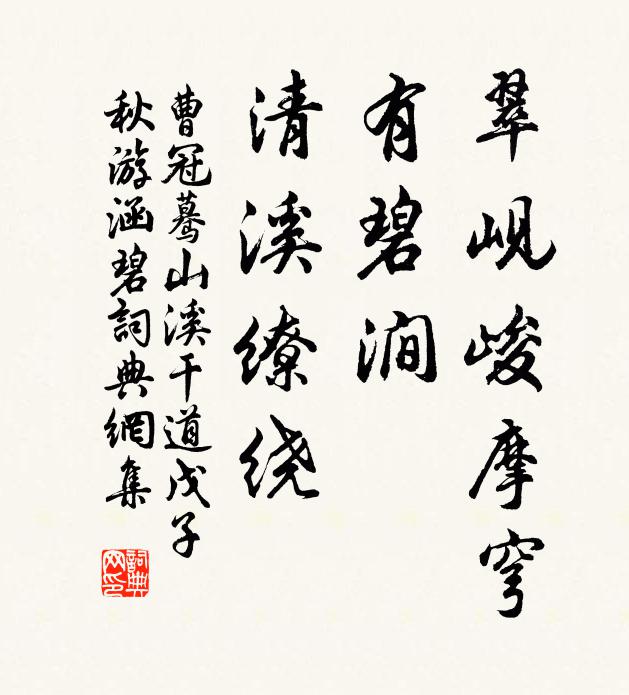 翠岘峻摩穹
有碧涧
清溪缭绕
曹冠蓦山溪干道戊子
秋游涵碧詞典網集
詞典网印